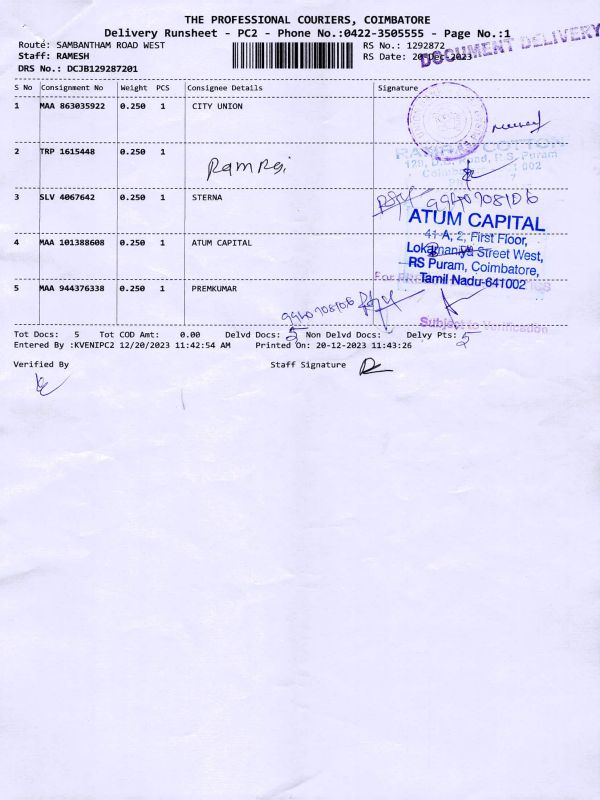 THE PROFESSIONAL COURIERS, COIMBATORE
Delivery Runsheet - PC2 - Phone No.:0422-3505555 - Page No.:1
Route: SAMBANTHAM ROAD WEST
Staff: RAMESH
DRS No.: DCJB129287201
RS No.: 1292872
RS Date: 20-Dec-2023
DOCUMENT DELIVERY
S No Consignment No Weight PCS Consignee Details Signature
1 MAA 863035922 0.250 1 CITY UNION
2 TRP 1615448 0.250 1
COTTON
R.S. Puram
3 SLV 4067642 0.250 1 STERNA
9940708106
ATUM CAPITAL
41-A, 2, First Floor,
Lokamaniya Street West,
RS Puram, Coimbatore,
Tamil Nadu-641002
4 MAA 101388608 0.250 1 ATUM CAPITAL
5 MAA 944376338 0.250 1 PREMKUMAR
9940708106
Subject to Verification
Tot Docs: 5 Tot COD Amt: 0.00 Delvd Docs: 5 Non Delvd Docs: Delvy Pts: 5
Entered By :KVENIPC2 12/20/2023 11:42:54 AM Printed On: 20-12-2023 11:43:26
Verified By Staff Signature